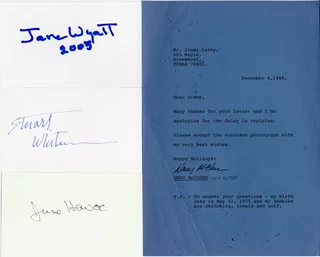 Jane Wyatt
2005
Stuart
Whitman
June Havoc
Mr. Jimmy
Brownwood,
TEXAS 76801.
December 4, 1985.
Dear Jimmy,
Many thanks for your letter and I do
apologise for the delay in replying.
Please accept the enclosed photograph with
my very best wishes.
Happy Holidays!
DOUG McCLURE
P.S. - To answer your questions - my birth
date is May 11, 1935 and my hobbies
are sketching, tennis and golf.